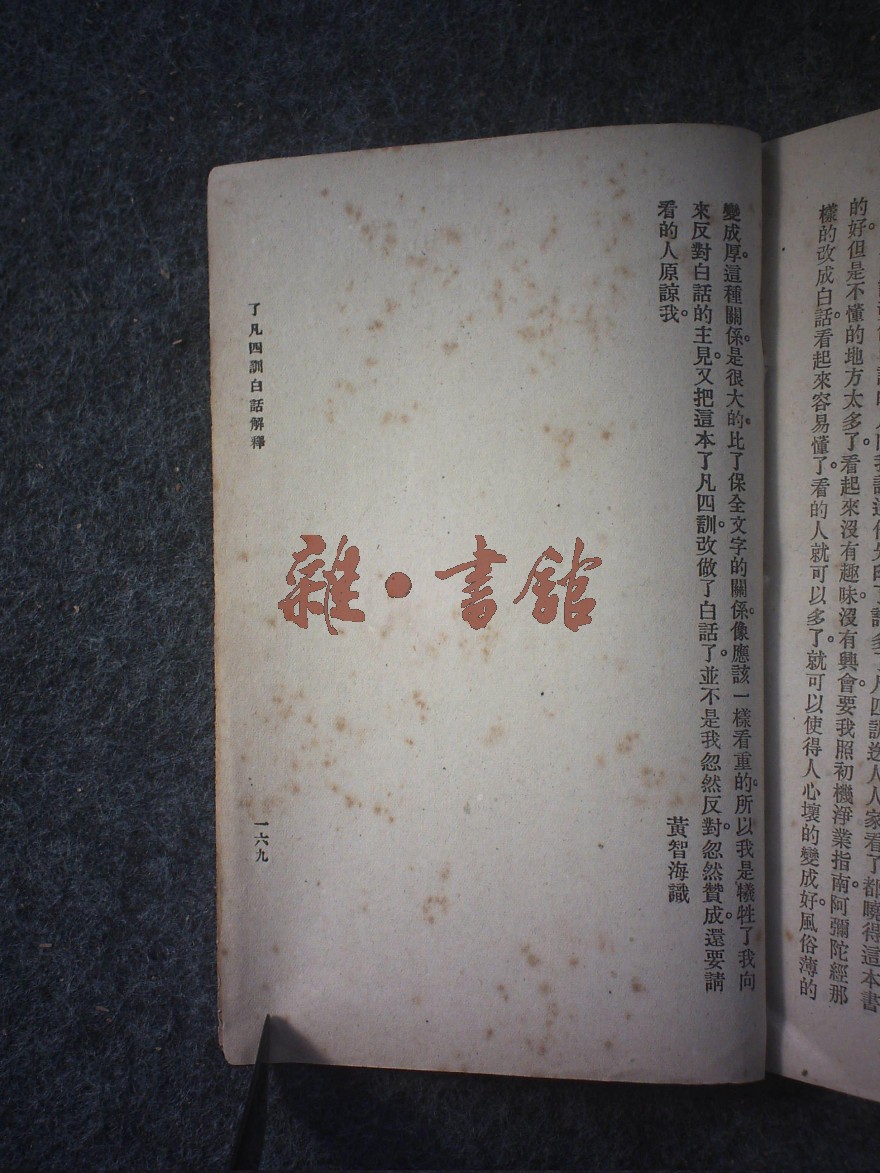 許多了凡四訓送人人家看了都曉得這本書
的好。但是不懂的地方太多了。看起來沒有趣味。沒有興會。要我照初機淨業指南。阿彌陀經那
樣的改成白話。看起來容易懂了。看的人就可以多了。就可以使得人心壞的變成好。風俗薄的
變成厚。這種關係。是很大的。比了保全文字的關係。像應該一樣看重的。所以我是犧牲了我向
來反對白話的主見。又把這本了凡四訓。改做了白話了。並不是我忽然反對。忽然贊成。還要請
看的人原諒我。
黃智海識
了凡四訓白話解釋
一六九
雜·書館